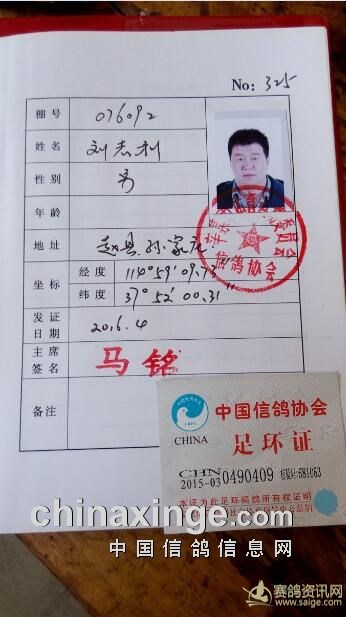 No: 325
棚号 076092
姓名 刘志利
性别 男
年龄
地址 赵县孙家庄
坐标 经度 114°59'09.73"
纬度 37°52'00.31"
发证日期 2016.4
主席签名 马铭
备注
信鸽协会
中国信鸽协会
CHINA 足环证
CHN
2015-03 0490409 681063
本证为此足环码鸽所有权证明
chinaxinge.com
中国信鸽信息网
赛鸽资讯网
www.saige.com